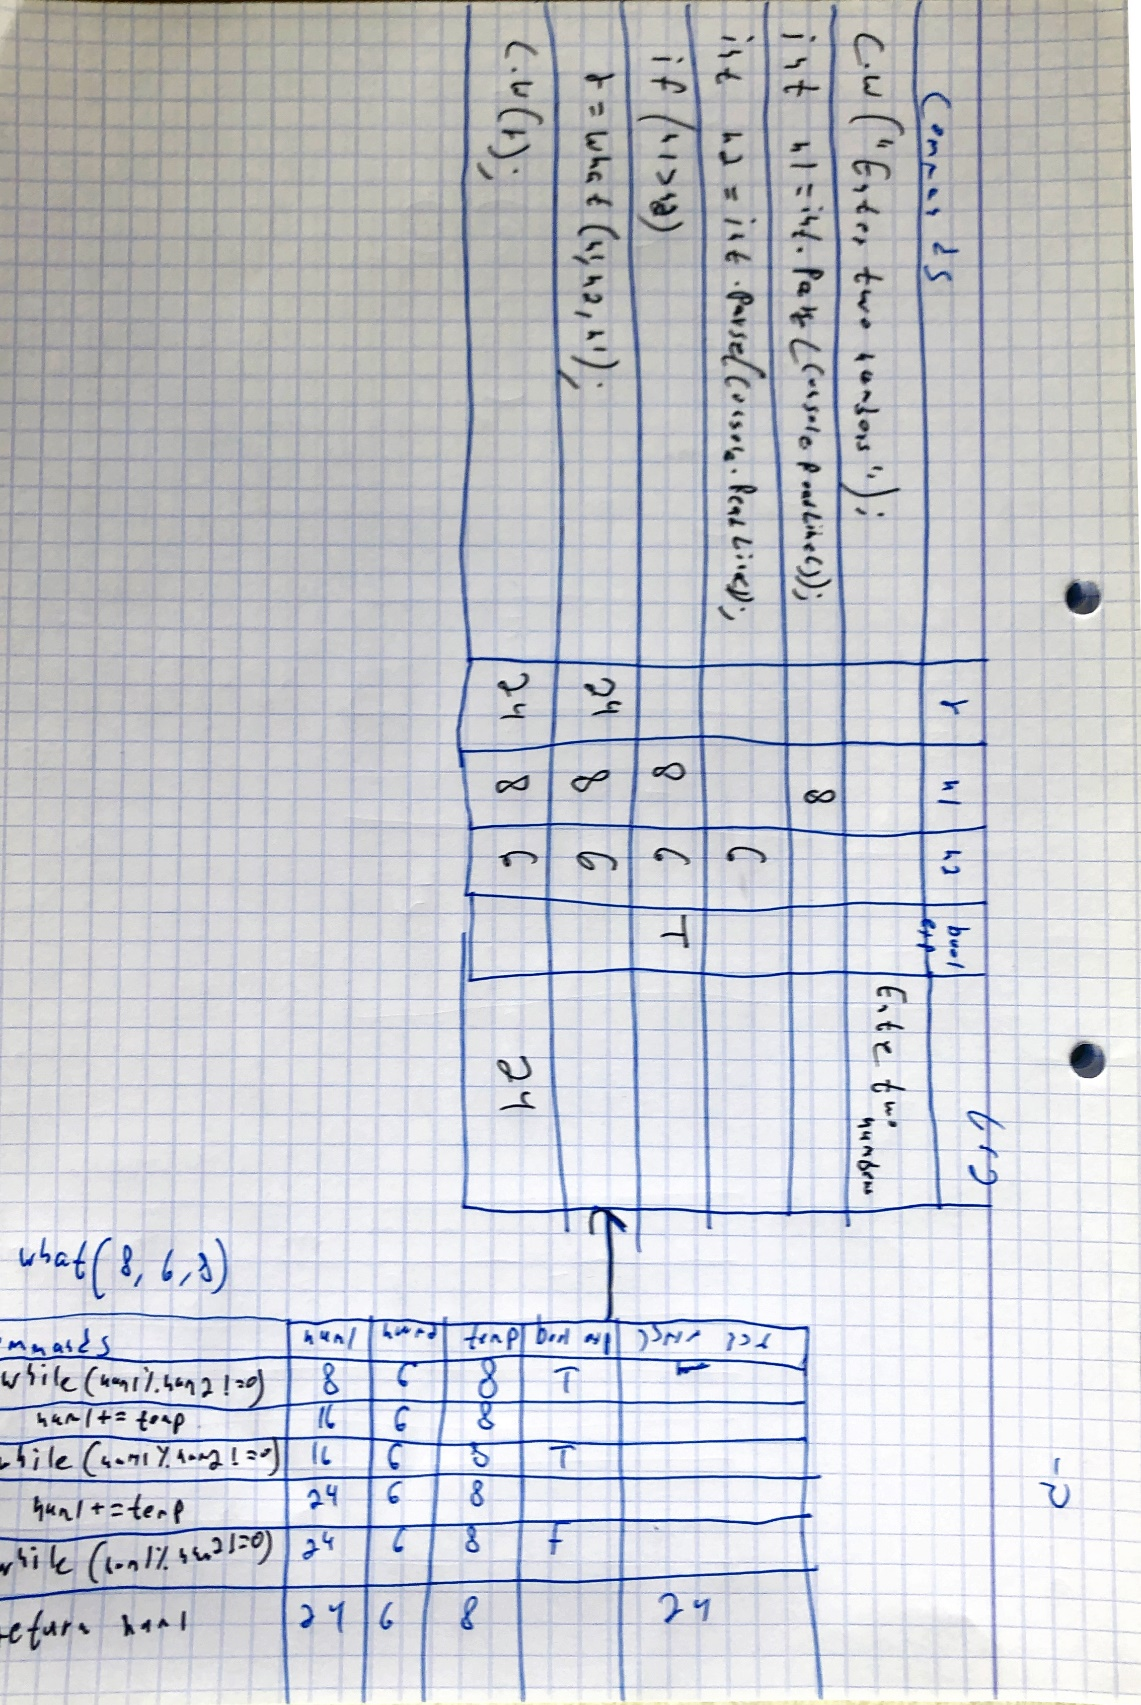 Commands r n1 n2 bool exp
C.W("Enter two numbers"); Enter two numbers
int n1=int.Parse(Console.ReadLine()); 8
int n2=int.Parse(Console.ReadLine()); 6
if (n1>n2) 8 6 T
r=what(n1,n2,n1); 24 8 6
C.W(r); 24 8 6 24
what(8,6,8)
mmands num1 num2 temp bool exp
while(num1%num2!=0) 8 6 8 T -
num1+=temp 16 6 8
while(num1%num2!=0) 16 6 8 T
num1+=temp 24 6 8
while(num1%num2!=0) 24 6 8 F
return num1 24 6 8 24